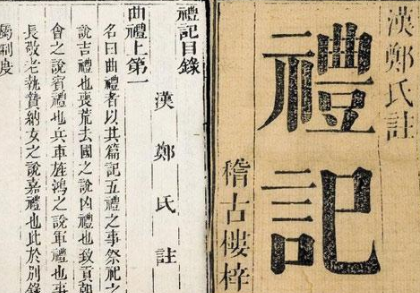 漢鄭氏註
禮記
稽古樓梓
禮記目錄
漢鄭氏註
曲禮上第一
名曰曲禮者以其篇記五禮之事祭祀之
說吉禮也喪荒去國之說凶禮也致貢朝
會之說賓禮也兵車旌鴻之說軍禮也事
長敬老執贄納女之說嘉禮也此於別錄
屬制度